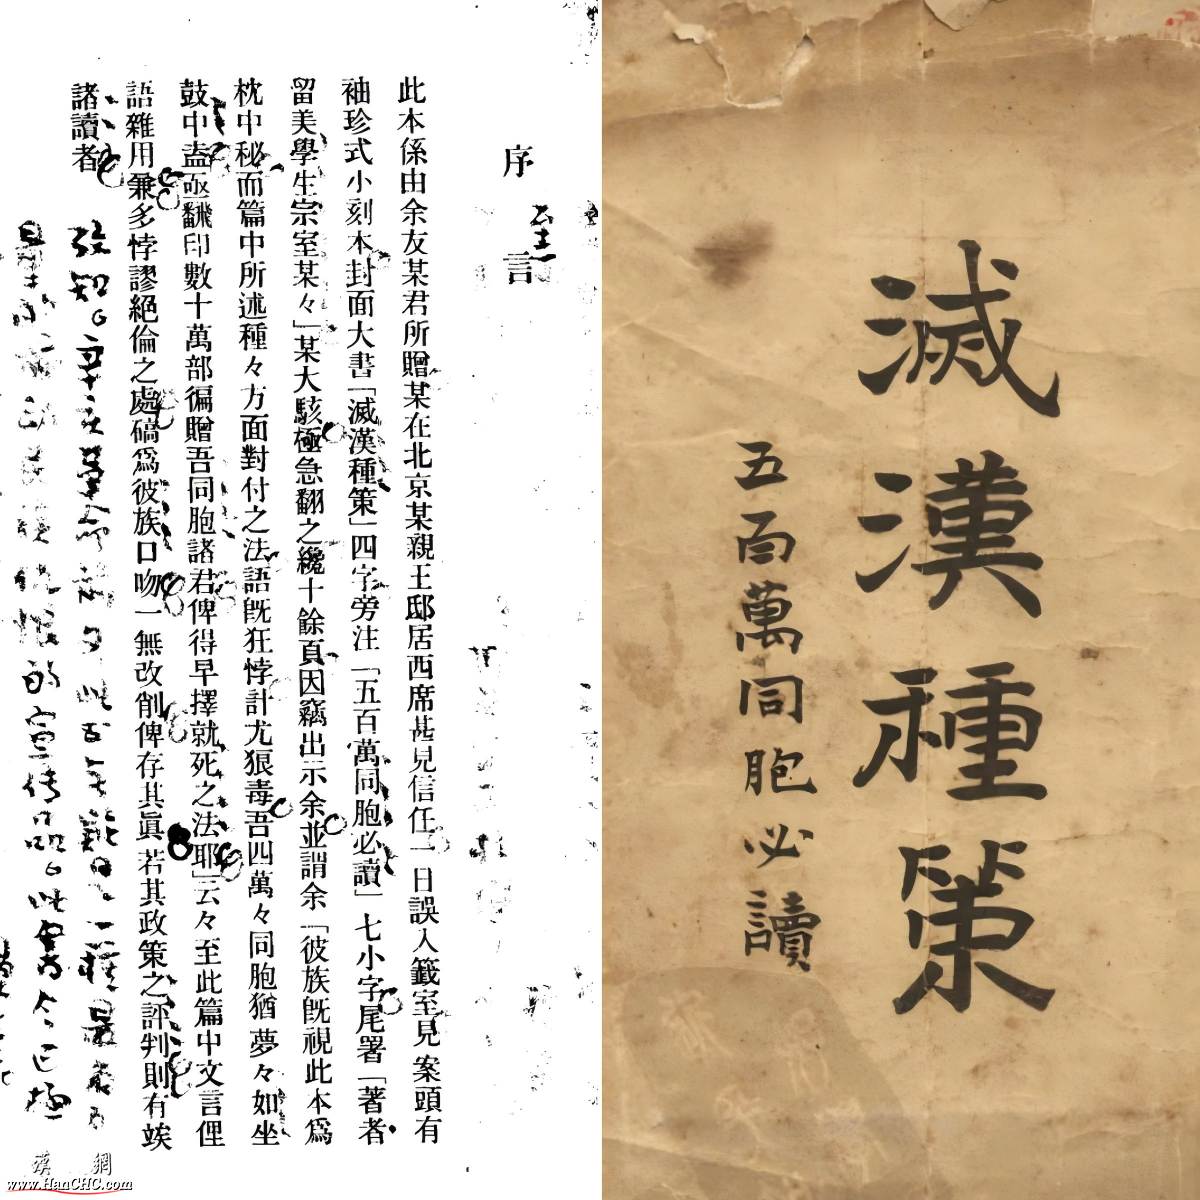 滅漢種策
五百萬同胞必讀
序言
此本係由余友某君所贈某在北京某親王邸居西席甚見信任一日誤入籤室見案頭有
袖珍式小刻本封面大書「滅漢種策」四字旁注「五百萬同胞必讀」七小字尾署「著者
留美學生宗室某々」某大駭極急翻之纔十餘頁因竊出示余並謂余「彼族既視此本為
枕中秘而篇中所述種々方面對付之法語既狂悖計尤狠毒吾四萬々同胞猶夢々如坐
鼓中盍亟翻印數十萬部徧贈吾同胞諸君俾得早擇就死之法耶」云々至此篇中文言俚
語雜用兼多悖謬絕倫之處碻為彼族口吻一無改削俾存其眞若其政策之評判則有竢
諸讀者
漢 網
www.HanCHC.com